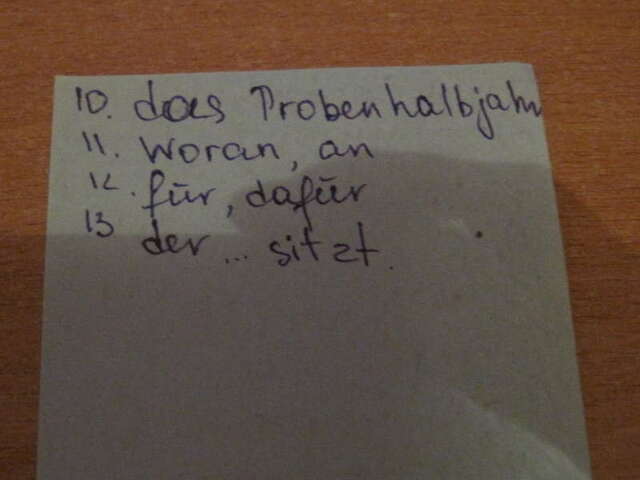 10. das Probenhalbjahr
11. woran, an
12. für, dafür
13 der ... sitzt.